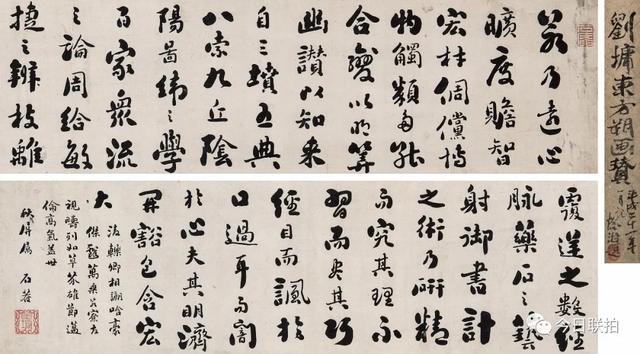 劉墉東方朔画贊
若乃遠心
曠度贍智
宏材倜儻博
物觸類多能
合變以明筭
幽讚以知來
自三墳五典
八索九丘陰
陽圖緯之學
百家眾流
之論周給敏
捷之辨枝離
覆逆之數經
脉藥石之藝
射御書計
之術乃研精
而究其理不
習而盡其巧
經目而諷於
口過耳而闇
於心夫其明濟
開豁包含宏
大
轢卿相謿哂豪
傑戲萬乘若寮友
視疇列如草芥雄節邁
倫高氣蓋世
屬 石菴
今日联拍